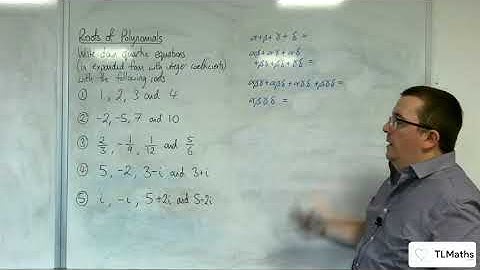 Roots of Polynomials
Write down quartic equations
(in expanded form with integer coefficients)
with the following roots
① 1, 2, 3 and 4
② -2, -5, 7 and 10
③ 2/3, -1/9, 1/12 and 5/6
④ 5, -2, 3-i and 3+i
⑤ i, -i, 5+2i and 5-2i
α+β+γ+δ =
αβ+αγ+αδ
+βγ+βδ+γδ =
αβγ+αβδ+αγδ+βγδ =
αβγδ =
TLMaths